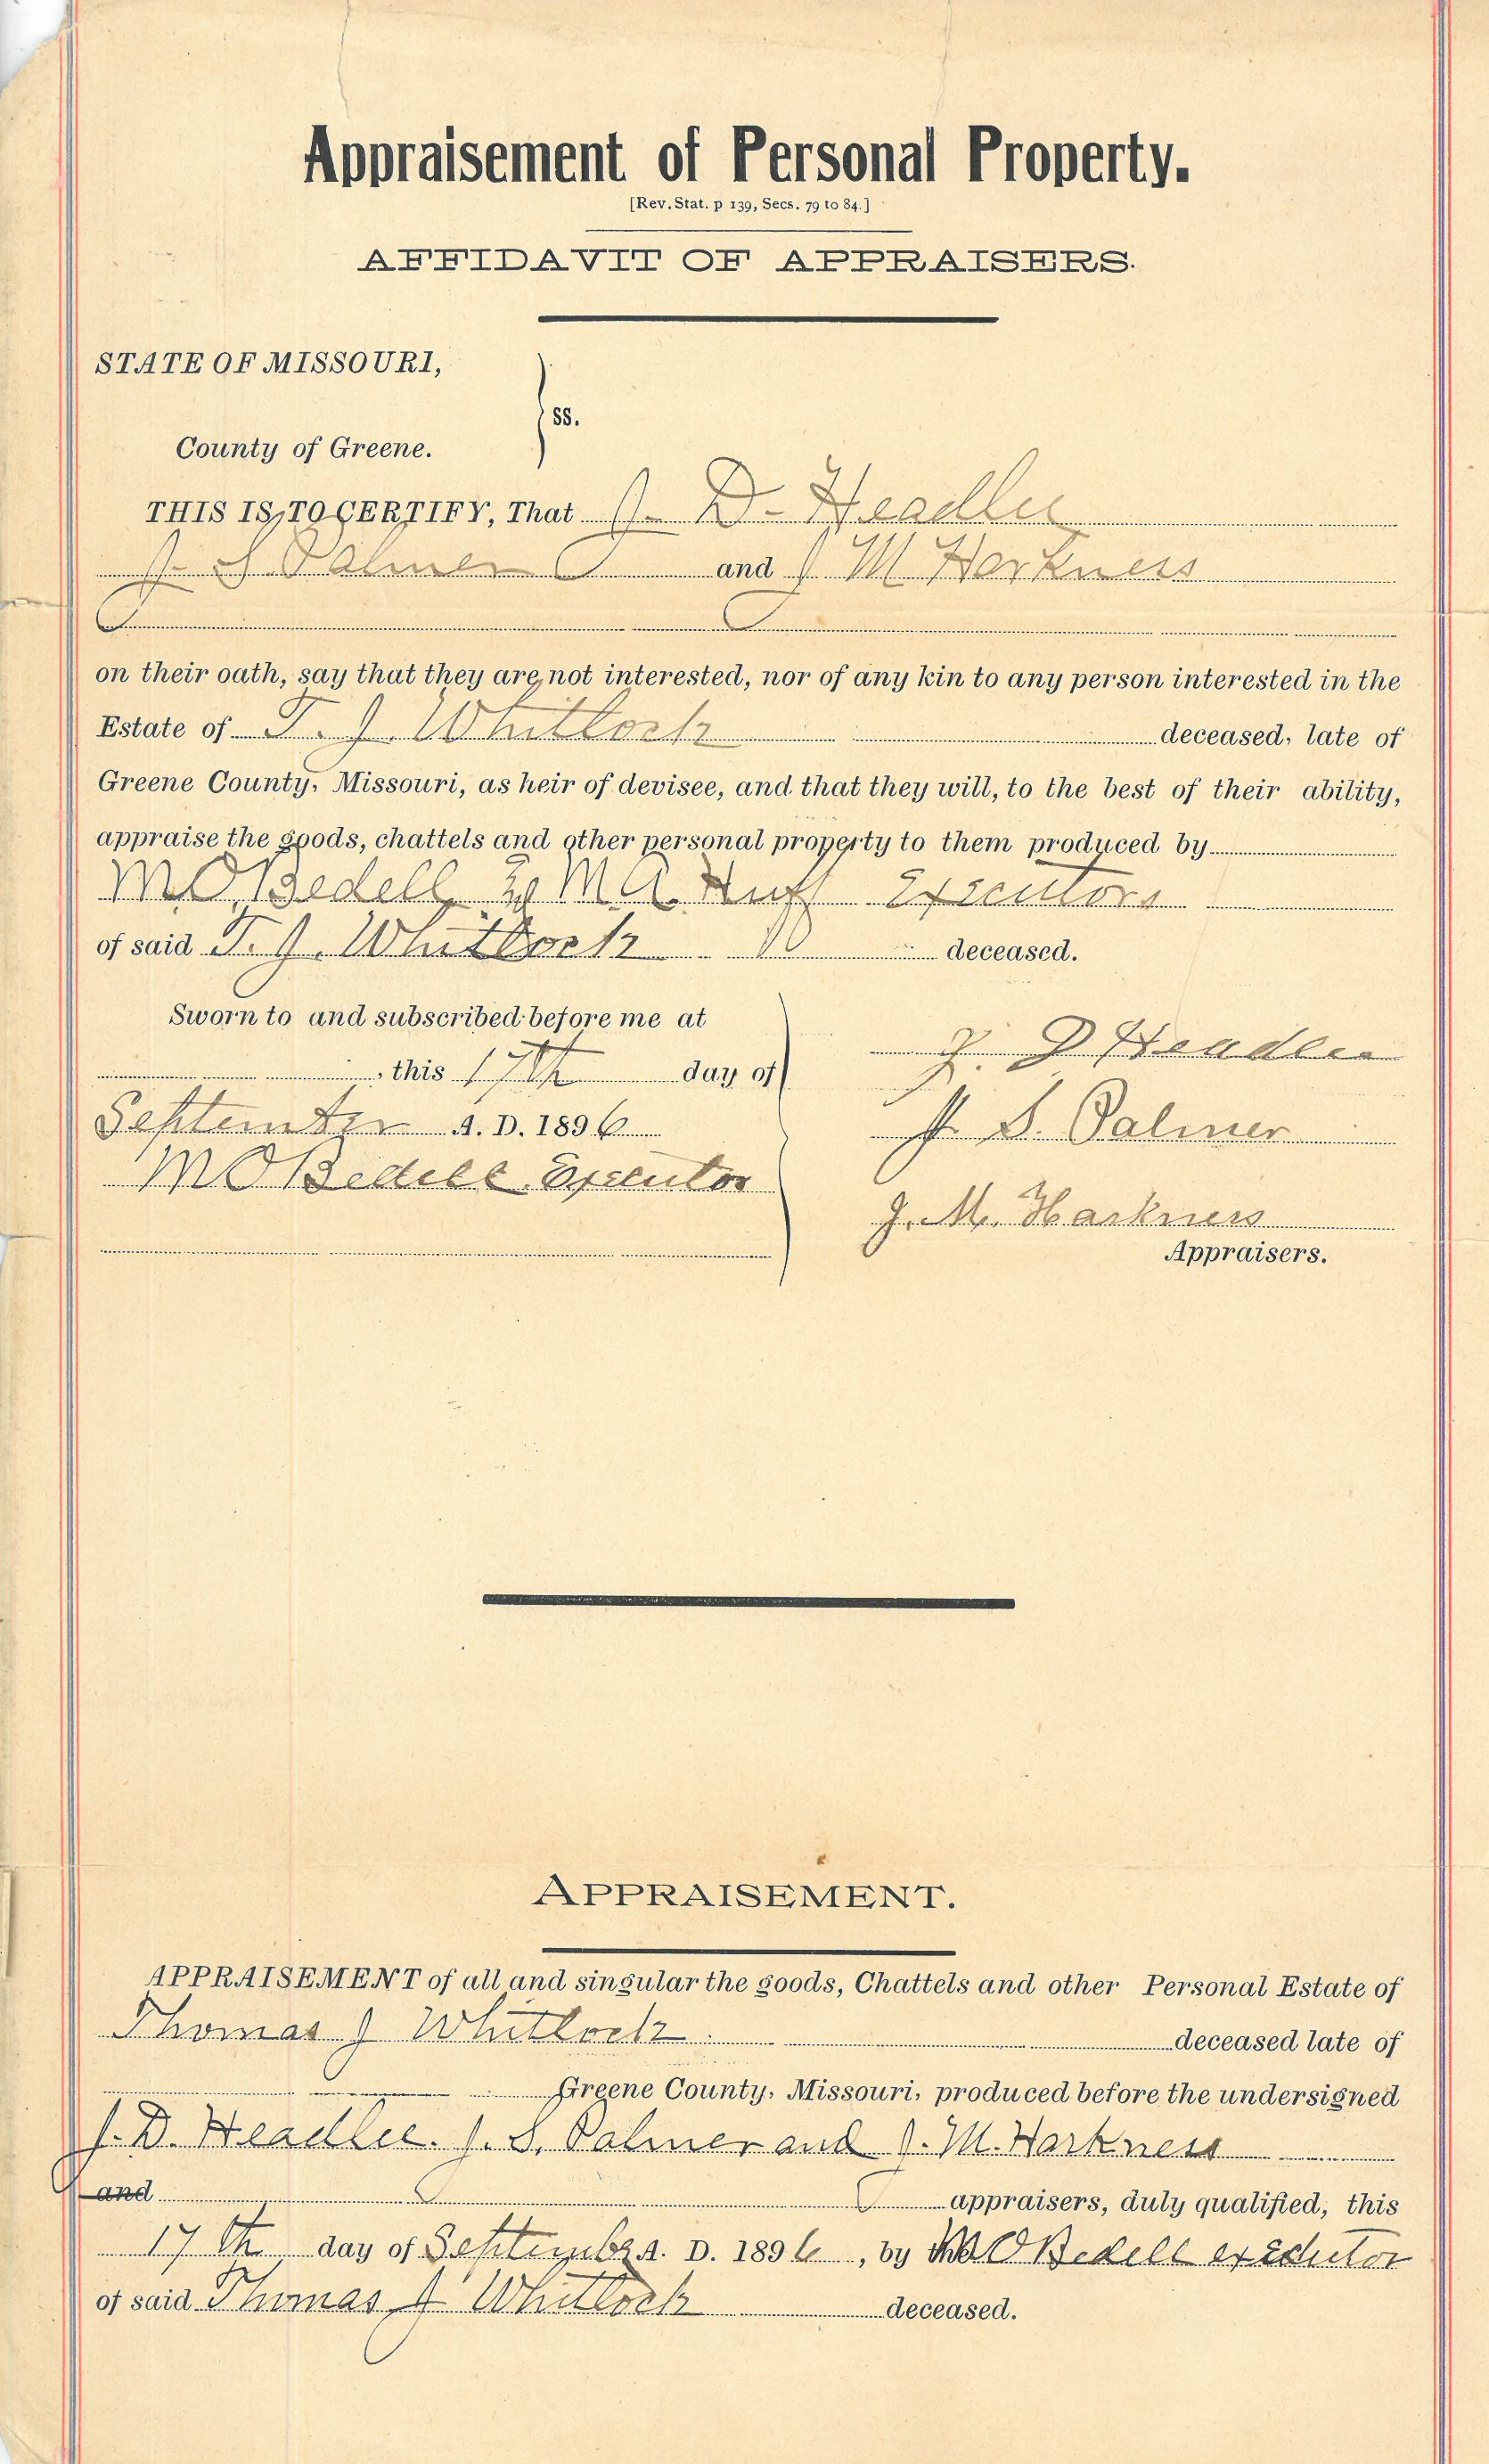 Appraisement of Personal Property.
[Rev. Stat. p 139, Secs. 79 to 84.]
AFFIDAVIT OF APPRAISERS.
STATE OF MISSOURI,
ss.
County of Greene.
THIS IS TO CERTIFY, That J. D. Headlee
J. S. Palmer and J M Harkness
on their oath, say that they are not interested, nor of any kin to any person interested in the
Estate of T. J. Whitlock deceased, late of
Greene County, Missouri, as heir of devisee, and that they will, to the best of their ability,
appraise the goods, chattels and other personal property to them produced by
M O Bedell & M A Huff Executors
of said T. J. Whitlock deceased.
Sworn to and subscribed before me at
, this 17th day of
September A. D. 1896
M O Bedell Executor
J. D Headlee
J. S. Palmer
J. M. Harkness
Appraisers.
APPRAISEMENT.
APPRAISEMENT of all and singular the goods, Chattels and other Personal Estate of
Thomas J Whitlock deceased late of
Greene County, Missouri, produced before the undersigned
J. D. Headlee. J. S. Palmer and J. M. Harkness
and appraisers, duly qualified, this
17th day of September A. D. 1896, by M O Bedell executor
of said Thomas J Whitlock deceased.